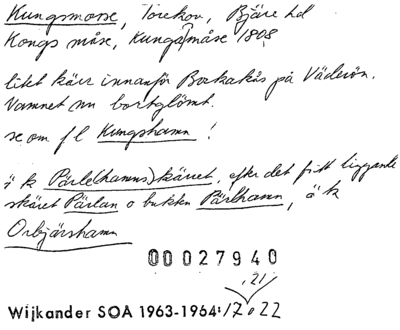 Kungsmosse, Torekov, Bjäre hd
Kongs måse, Kungsmåse 1808
litet kärr innanför Bockakås på Väderön.
Namnet nu bortglömt.
se om fl Kungshamn!
i k Pärle(hamns)kärret, efter det fritt liggande
skäret Pärlan o bukten Pärlhamn, ä k
Örbjärshamn
00027940
,21
Wijkander SOA 1963-1964:/7,22